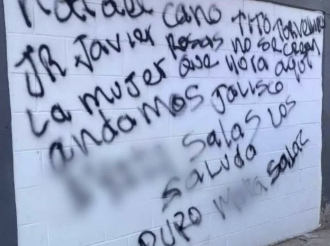 Rafael Cano TITO TORVELLINO
JR Javier Rosas NO SE CREAN
LA MUJER QUE NORA AQUI
ANDAMOS JALISCO
SALAS LOS
SALUDA
PURO SALAS